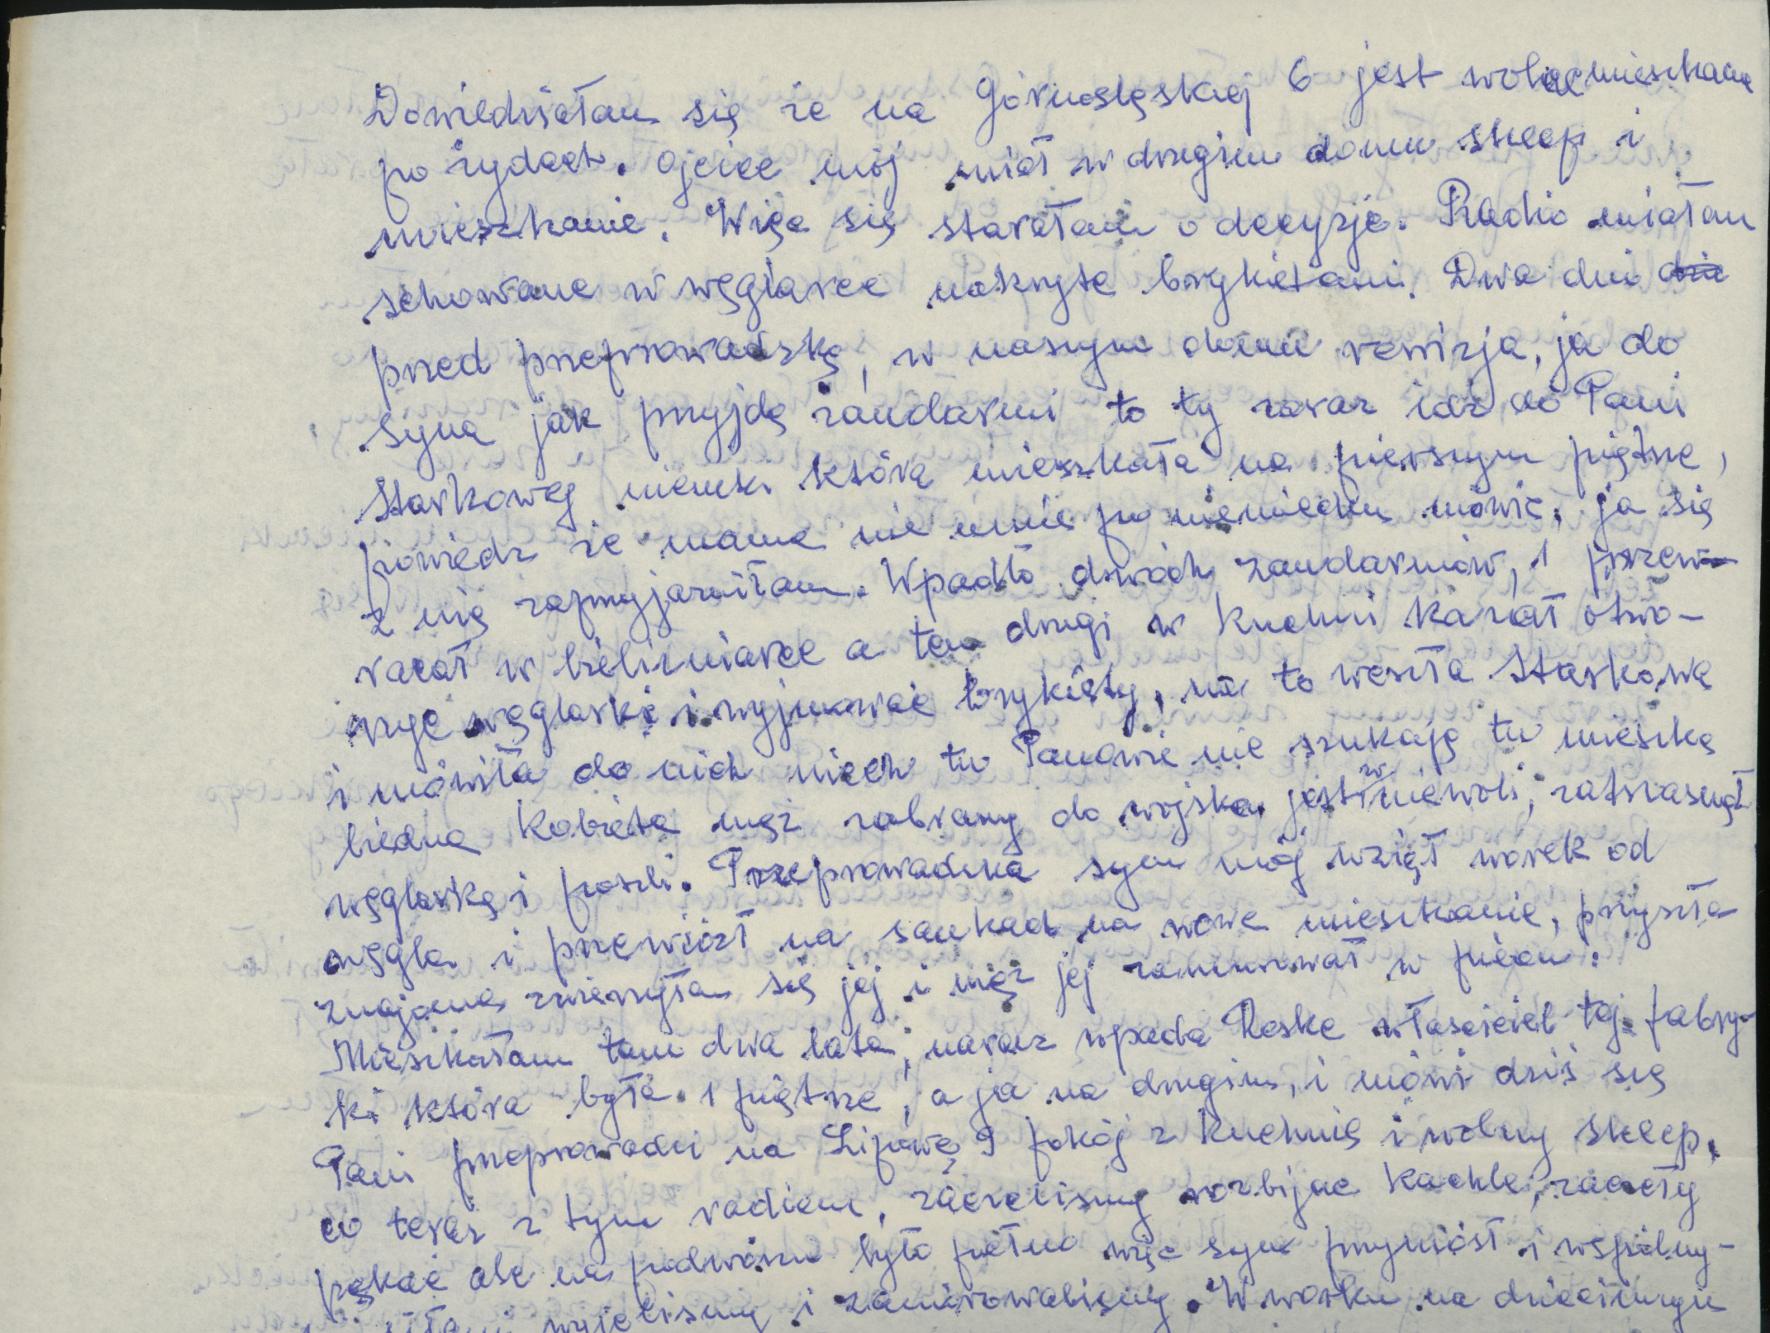 Dowiedziałam się że na Górnosląskiej 6 jest wolne mieszkanie
po żydach. Ojciec mój miał w drugim domu sklep i
mieszkanie. Więc się starałam o decyzje. Radio miałam
schowane w węglarce nakryte brykietami. Dwa dni
pzed przeprowadzką, w naszym domu rewizja, ja do
syna jak przyjdą żandarmi to ty zaraz idź do Pani
Starkowej niemki która mieszkała na pierszym piętrze,
powiedz że mama nie umie po niemiecku mówić, ja się
z nią zaprzyjazniłam. Wpadło dwóch zandarmów, 1 przew-
racał w bieliźniarce a ten drugi w kuchni kazał otwo-
rzyć węglarkę i wyjmować brykiety, na to weszła Starkowa
i mówiła do nich niech tu Panowie nie szukają tu mieszka
biedna kobieta mąż zabrany do wojska jest w niewoli, zatrzasnął
węglarkę i poszli. Przeprowadzka syn mój wziął worek od
węgla i przewiózł na sankach na nowe mieszkanie, przyszła
znajoma zwierzyłam się jej i mąż jej zamurował w piecu.
Mieszkałam tam dwa lata, naraz wpada Reske właściciel tej fabry-
ki która była 1 piętrze, a ja na drugim, i mówi dziś się
Pani przeprowadzi na Lipową 9 pokój z kuchnią i wolny sklep,
co teraz z tym radiem, zaczelismy rozbijac kachle, zaczęły
pękać ale na podwórzu było płótno więc syn przyniósł i wspólny-
wyjelismy i zamurowalismy. W worku na dziecinnym